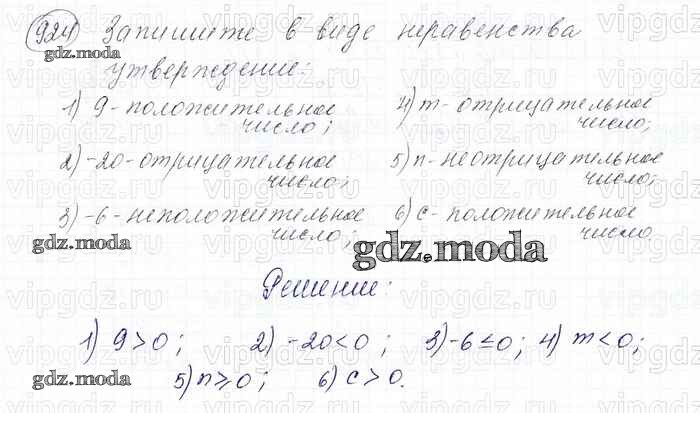 924 Запишите в виде неравенства
gdz.moda
утверждение:
1) 9 - положительное
число;
4) m - отрицательное
число;
2) -20 - отрицательное
число;
5) n - неотрицательное
число;
3) -6 - неположительное
число;
6) c - положительное
число.
gdz.moda
gdz.moda
Решение:
1) 9 > 0; 2) -20 < 0; 3) -6 ≤ 0; 4) m < 0;
gdz.moda
5) n ≥ 0; 6) c > 0.